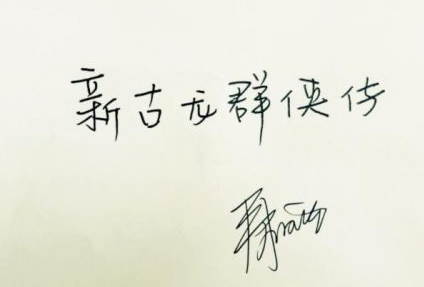 新古龙群侠传